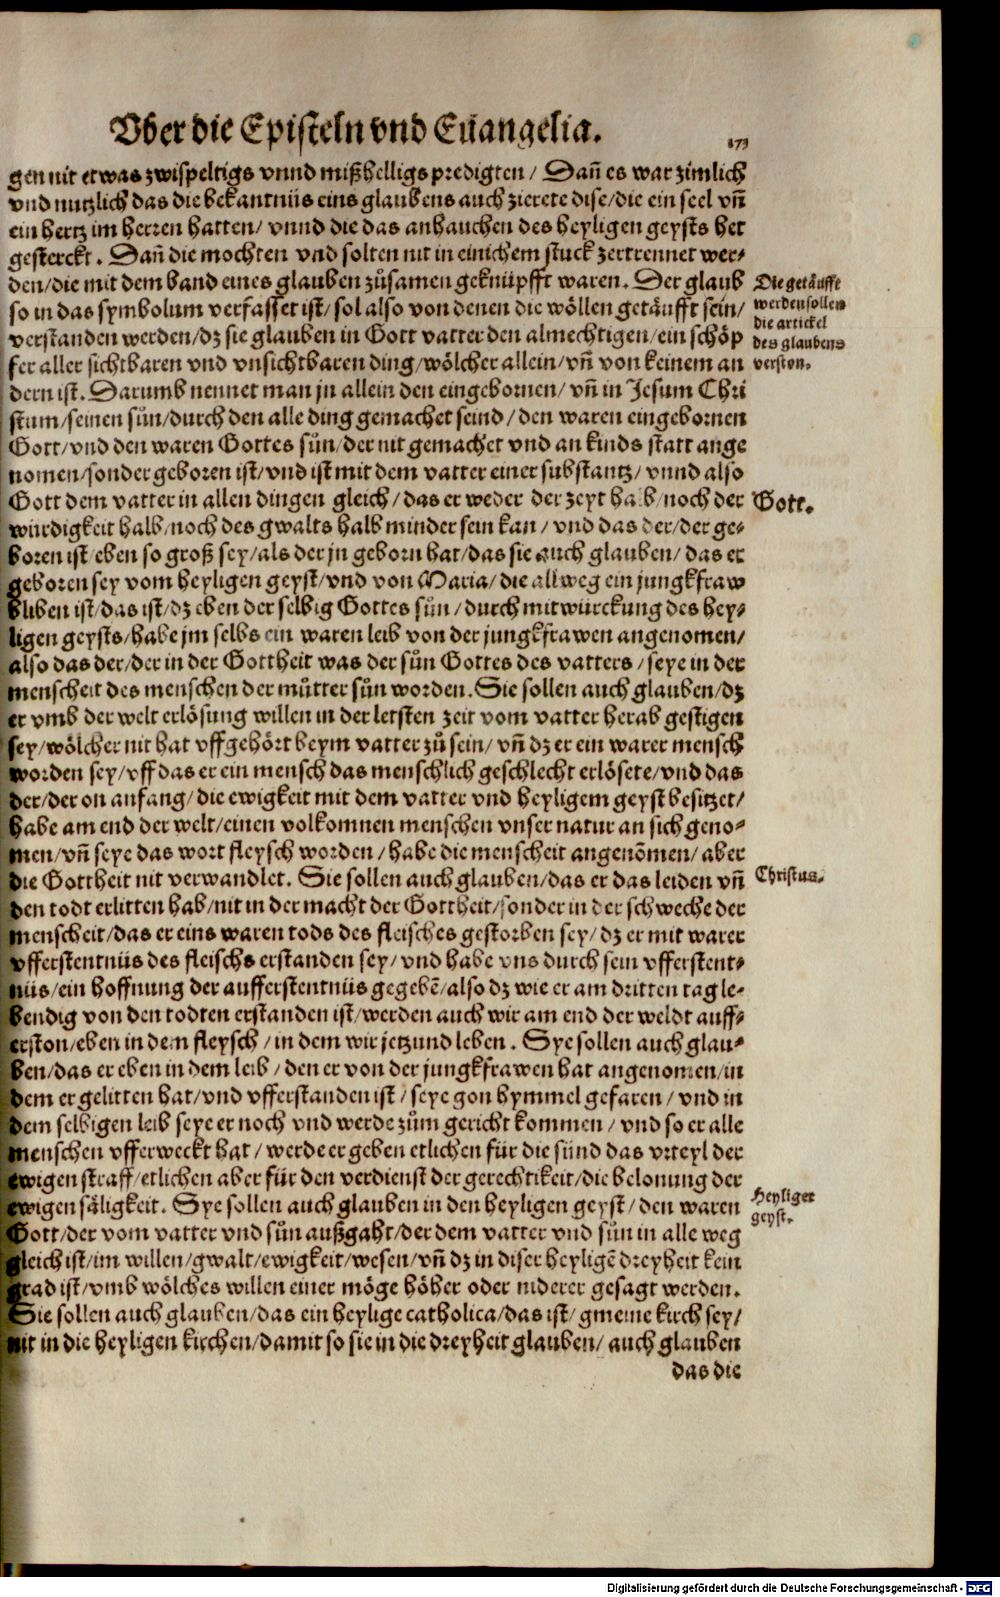 Vber die Episteln vnd Euangelia.
173
gen nit etwas zwispeltigs vnnd mißhelligs predigten / Dañ es war zimlich
vnd nutzlich das die bekantnüs eins glaubens auch zierete dise/die ein seel vñ
ein hertz im herren hatten/ vnnd die das anhauchen des heyligen geysts het
gesterckt. Dañ die mochten vnd solten nit in einichem stuck zertrennet wer-
den/die mit dem band eines glauben zůsamen geknüpfft waren. Der glaub
Die getäufft
werden sollen
die artickel
des glaubens
verston.
so in das symbolum verfasset ist/ sol also von denen die wöllen getäufft sein/
verstanden werden/dz sie glauben in Gott vatter den almechtigen/ein schöp
fer aller sichtbaren vnd vnsichtbaren ding/wölcher allein/vñ von keinem an
dern ist. Darumb nennet man jn allein den eingebornen/ vñ in Jesum Chri
stum/seinen sůn/durch den alle ding gemachet seind/ den waren eingebornen
Gott/vnd den waren Gottes sůn/der nit gemachet vnd an kinds statt ange
nomen/sonder geboren ist/vnd ist mit dem vatter einer substantz/ vnnd also
Gott dem vatter in allen dingen gleich/das er weder der zeyt halb/noch der
Gott.
würdigkeit halb/noch des gwalts halb minder sein kan/ vnd das der/der ge-
boren ist eben so groß sey/als der jn geborn hat/das sie auch glauben/ das er
geboren sey vom heyligen geyst/vnd von Maria/die allweg ein jungkfraw
bliben ist/das ist/dz eben der selbig Gottes sůn/durch mitwürckung des hey-
ligen geysts/habe jm selbs ein waren leib von der jungkfrawen angenomen/
also das der/der in der Gottheit was der sůn Gottes des vatters/seye in der
menscheit des menschen der můtter sůn worden. Sie sollen auch glauben/dz
er vmb der welt erlösung willen in der letsten zeit vom vatter herab gestigen
sey/wölcher nit hat vffgehört beym vatter zů sein/ vñ dz er ein warer mensch
worden sey/vff das er ein mensch das menschlich geschlecht erlösete/vnd das
der/der on anfang/die ewigkeit mit dem vatter vnd heyligem geyst besitzet/
habe am end der welt/einen volkomnen menschen vnser natur an sich geno-
men/vñ seye das wort fleysch worden/habe die menscheit angenōmen/ aber
die Gottheit nit verwandlet. Sie sollen auch glauben/das er das leiden vñ
Christus.
den todt erlitten hab/nit in der macht der Gottheit/sonder in der schweche der
menscheit/das er eins waren tods des fleisches gestorben sey/dz er mit warer
vfferstentnüs des fleischs erstanden sey/vnd habe vns durch sein vfferstent-
nüs/ein hoffnung der aufferstentnüs gegebē/also dz wie er am dritten tag le-
bendig von den todten erstanden ist/werden auch wir am end der weldt auff-
erston/eben in dem fleysch/in dem wir jetzund leben. Sye sollen auch glau-
ben/das er eben in dem leib/den er von der jungkfrawen hat angenomen/in
dem er gelitten hat/vnd vfferstanden ist/seye gon hymmel gefaren/ vnd in
dem selbigen leib seye er noch vnd werde zům gericht kommen/ vnd so er alle
menschen vfferweckt hat/ werde er geben etlichen für die sünd das vrteyl der
ewigen straff/etlichen aber für den verdienst der gerechtikeit/die belonung der
ewigen säligkeit. Sye sollen auch glauben in den heyligen geyst/ den waren
Heyliger
geyst.
Gott/der vom vatter vnd sůn außgaht/der dem vatter vnd sůn in alle weg
gleich ist/im willen/gwalt/ewigkeit/wesen/vñ dz in diser heyligē dreyheit kein
grad ist/vmb wölches willen einer möge höher oder niderer gesagt werden.
Sie sollen auch glauben/das ein heylige catholica/das ist/gmeine kirch sey/
nit in die heyligen kirchen/damit so sie in die dreyheit glauben/ auch glauben
das die
Digitalisierung gefördert durch die Deutsche Forschungsgemeinschaft - DFG